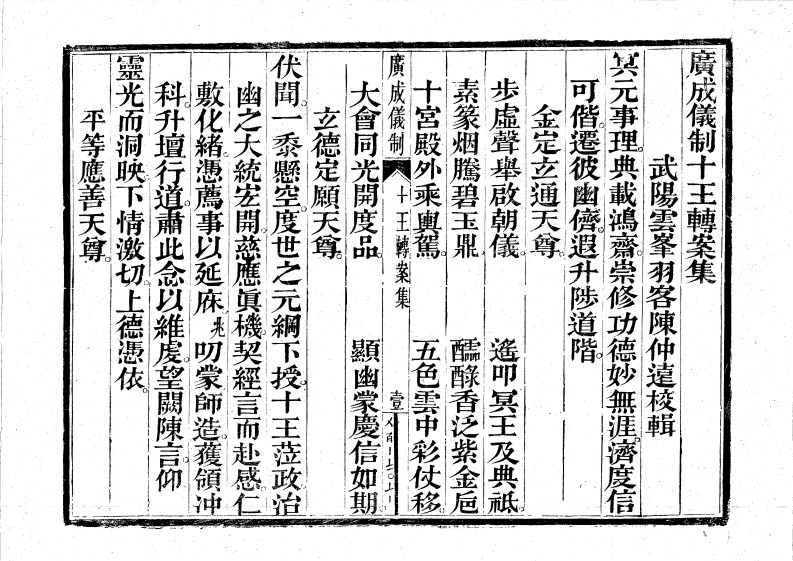 廣成儀制十王轉案集
武陽雲峯羽客陳仲遠校輯
冥元事理。典載鴻齋。崇修功德妙無涯。濟度信
可偕。遷彼幽儕。遐升陟道階。
金定立通天尊。
步虛聲舉啟朝儀。 遙叩冥王及典祇。
素篆烟騰碧玉鼎 醽醁香泛紫金巵
十宮殿外乘輿駕。 五色雲中彩仗移
廣成儀制 十王轉案集 壹
大會同光開度品。 顯幽蒙慶信如期
立德定願天尊。
伏聞。一黍懸空。度世之元綱下授。十王蒞政治
幽之大統宏開。慈應眞機。契經言而赴感。仁
敷化緒。憑薦事以延庥。兆叨蒙師造。獲領冲
科。升壇行道。肅此念以維虔。望闕陳言。仰
靈光而洞映。下情激切。上德憑依。
平等應善天尊。